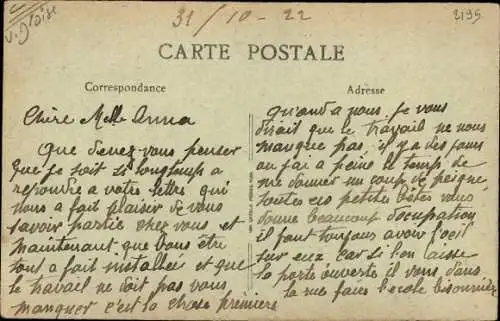 31/10-22
2195
V. D'oise
CARTE POSTALE
Correspondance
Adresse
Chère Melle Anna
Que devez-vous penser
que je soit si longtemps a
repondre a votre lettre qui
nous a fait plaisir de vous
savoir partie chez vous et
maintenant que vous être
tout a fait installée et que
le travail ne doit pas vous
manquer c'est la chose première
quand a nous je vous
dirait que le travail ne nous
manque pas, il y a des jours
ou j'ai a peine le temps de
me donner un coup de peigne,
toutes ces petites bêtes vous
donne beaucoup d'occupation
il faut toujours avoir l'oeil
sur eux car si l'on laisse
la porte ouverte il vous dans
la rue faire l'ecole bisonnière